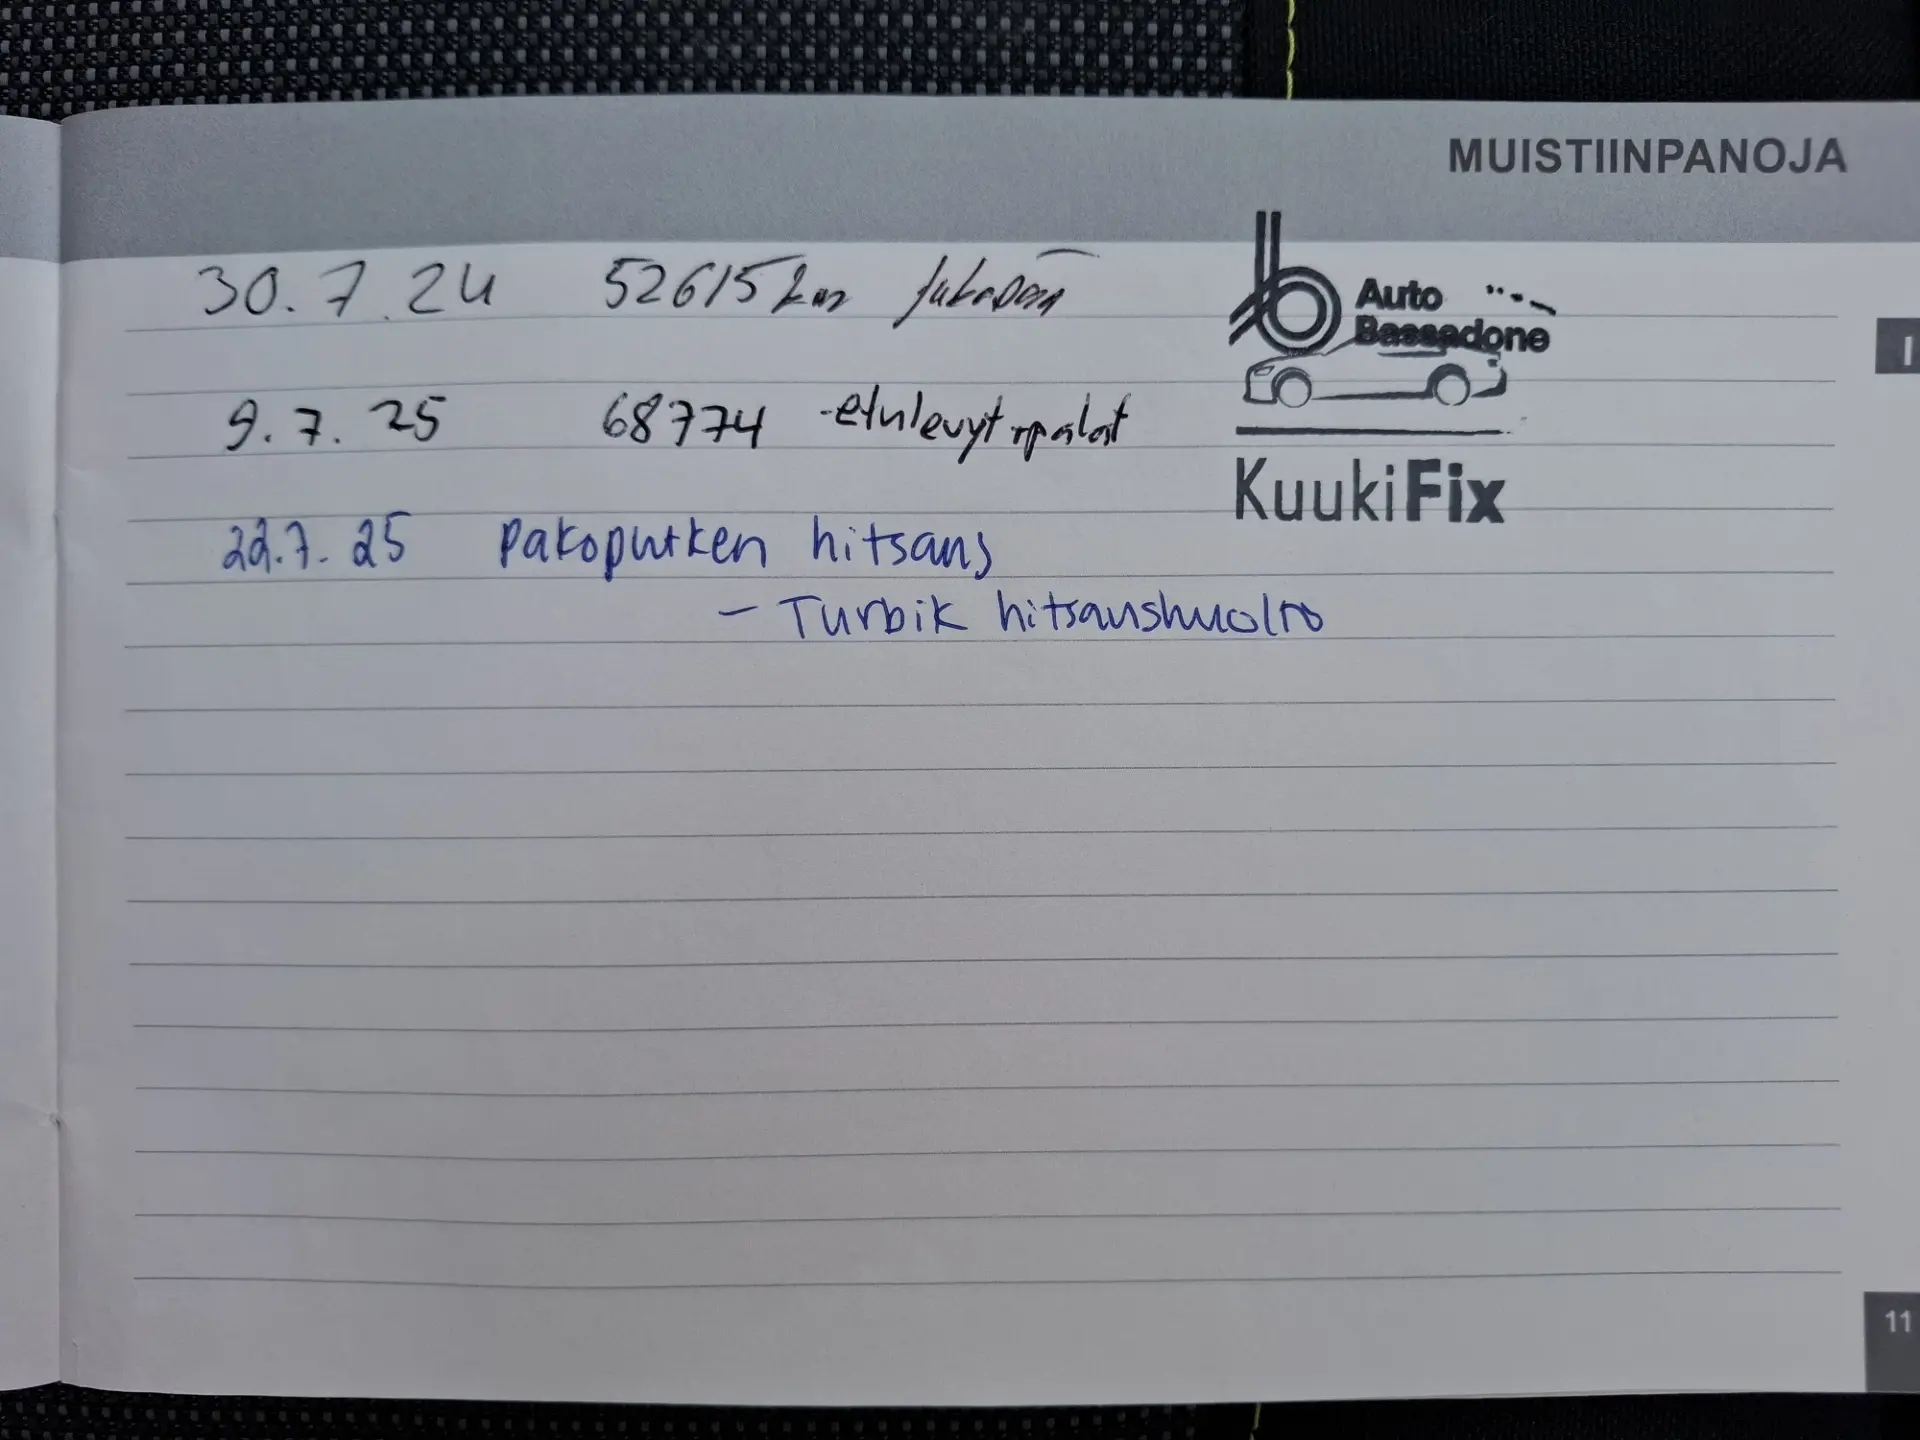 MUISTIINPANOJA
30.7.24 52615 km jakopää
Auto
Bassadone
9.7.25 68774 -etulevyt+palat
KuukiFix
22.7.25 Pakoputken hitsaus
- Turbik hitsaushuolto
I
11